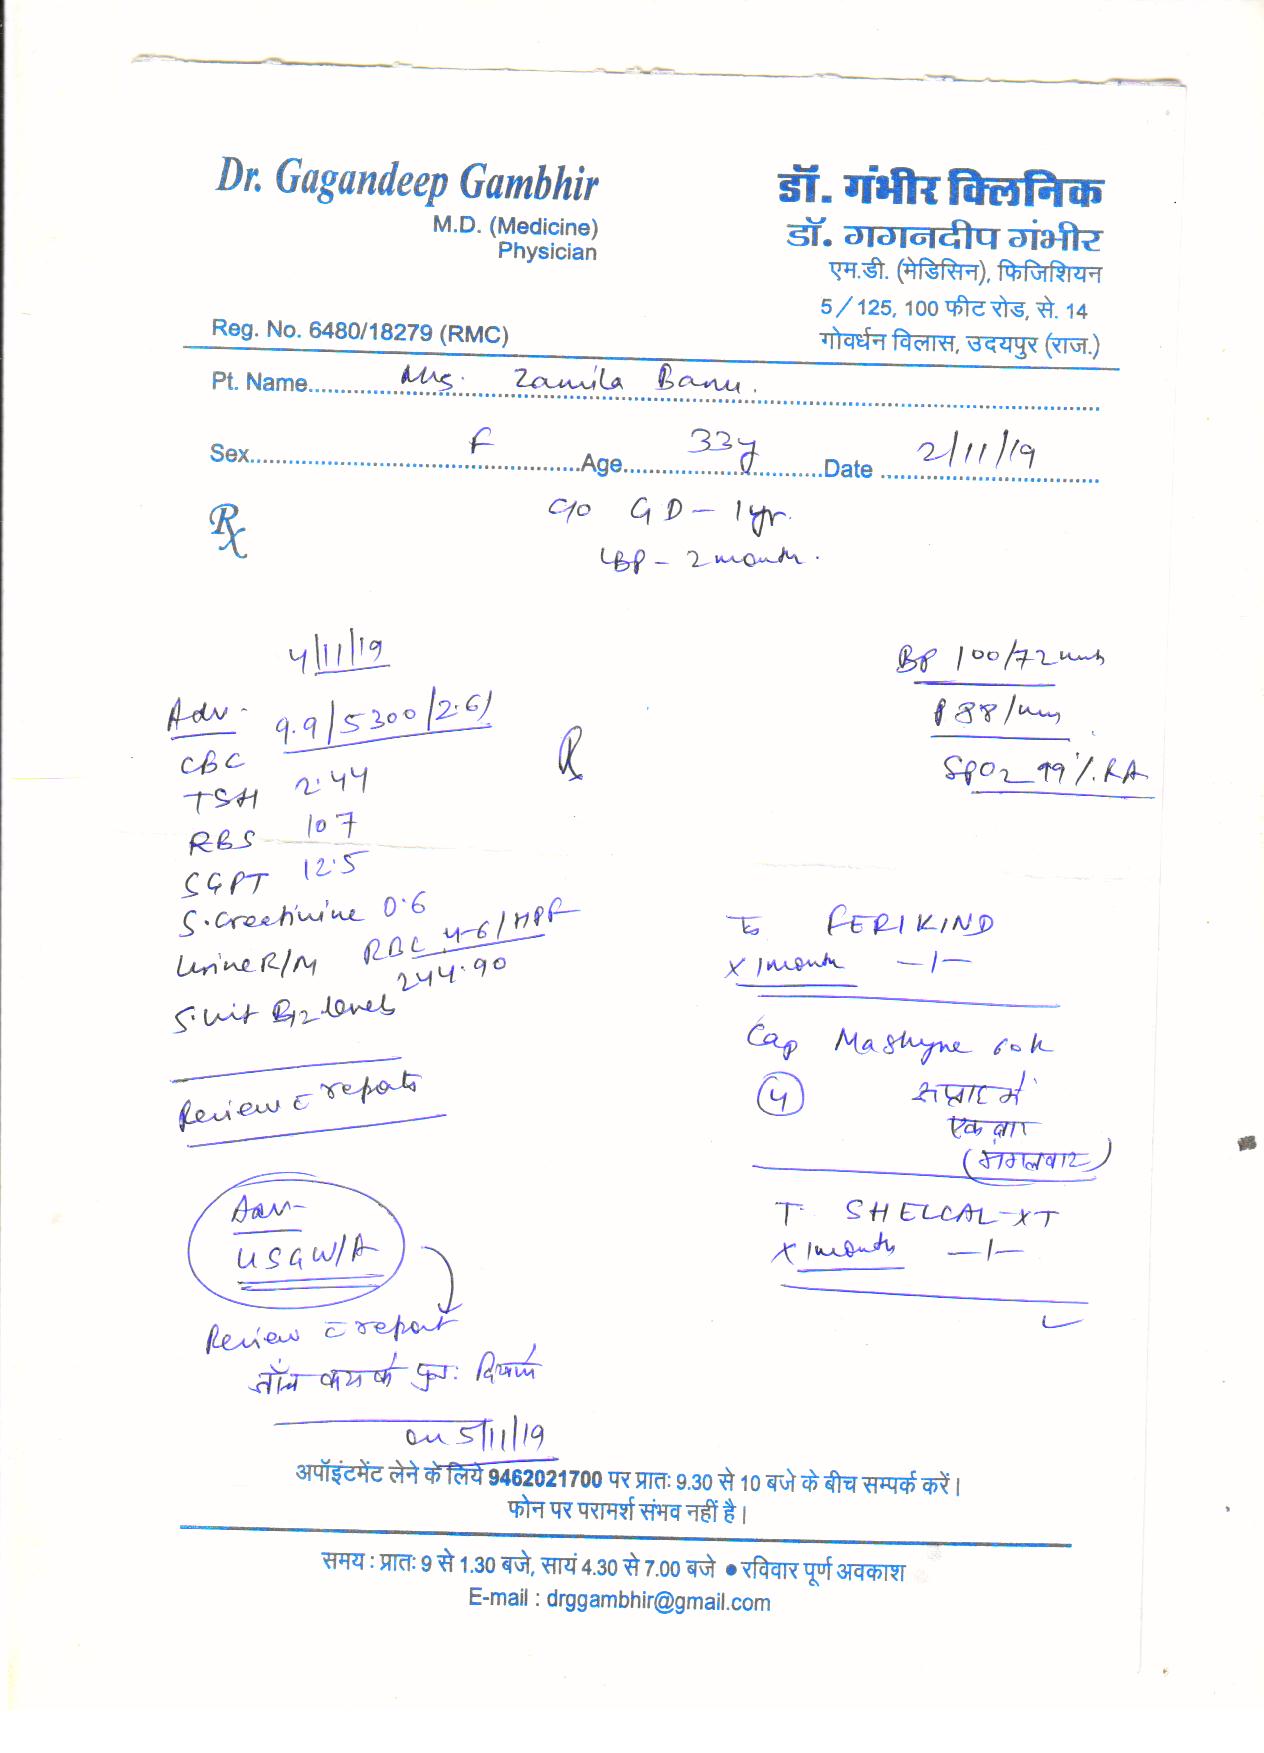 Dr. Gagandeep Gambhir
M.D. (Medicine)
Physician
Reg. No. 6480/18279 (RMC)
डॉ. गंभीर क्लिनिक
डॉ. गगनदीप गंभीर
एम.डी. (मेडिसिन), फिजिशियन
5/125, 100 फीट रोड, से. 14
गोवर्धन विलास, उदयपुर (राज.)
Pt. Name Mrs. Zamila Banu.
Sex F Age 33y Date 2/11/19
Rx
c/o GD - 1 yr.
LBP - 2 month.
4/11/19
Adv - 9.9/5300/2.61
CBC
TSH 2.44
RBS 107
SGPT 12.5
S. Creatinine 0.6
Urine R/M RBC 4-6/HPF
244.90
S. Vit B12 levels
Review c reports
Adv-
USG W/A
Review c report
जाँच करा के पुनः दिखाएं
on 5/11/19
BP 100/72
P 88/min
SPO2 99 %. RA
Rx
FERIKIND
x 1 month —1—
Cap Mashyne 60k
4 सप्ताह में
एक बार
(मंगलवार)
T. SHELCAL-XT
x 1 month —1—
अपॉइंटमेंट लेने के लिये 9462021700 पर प्रातः 9.30 से 10 बजे के बीच सम्पर्क करें।
फोन पर परामर्श संभव नहीं है।
समय : प्रातः 9 से 1.30 बजे, सायं 4.30 से 7.00 बजे ● रविवार पूर्ण अवकाश
E-mail : drggambhir@gmail.com